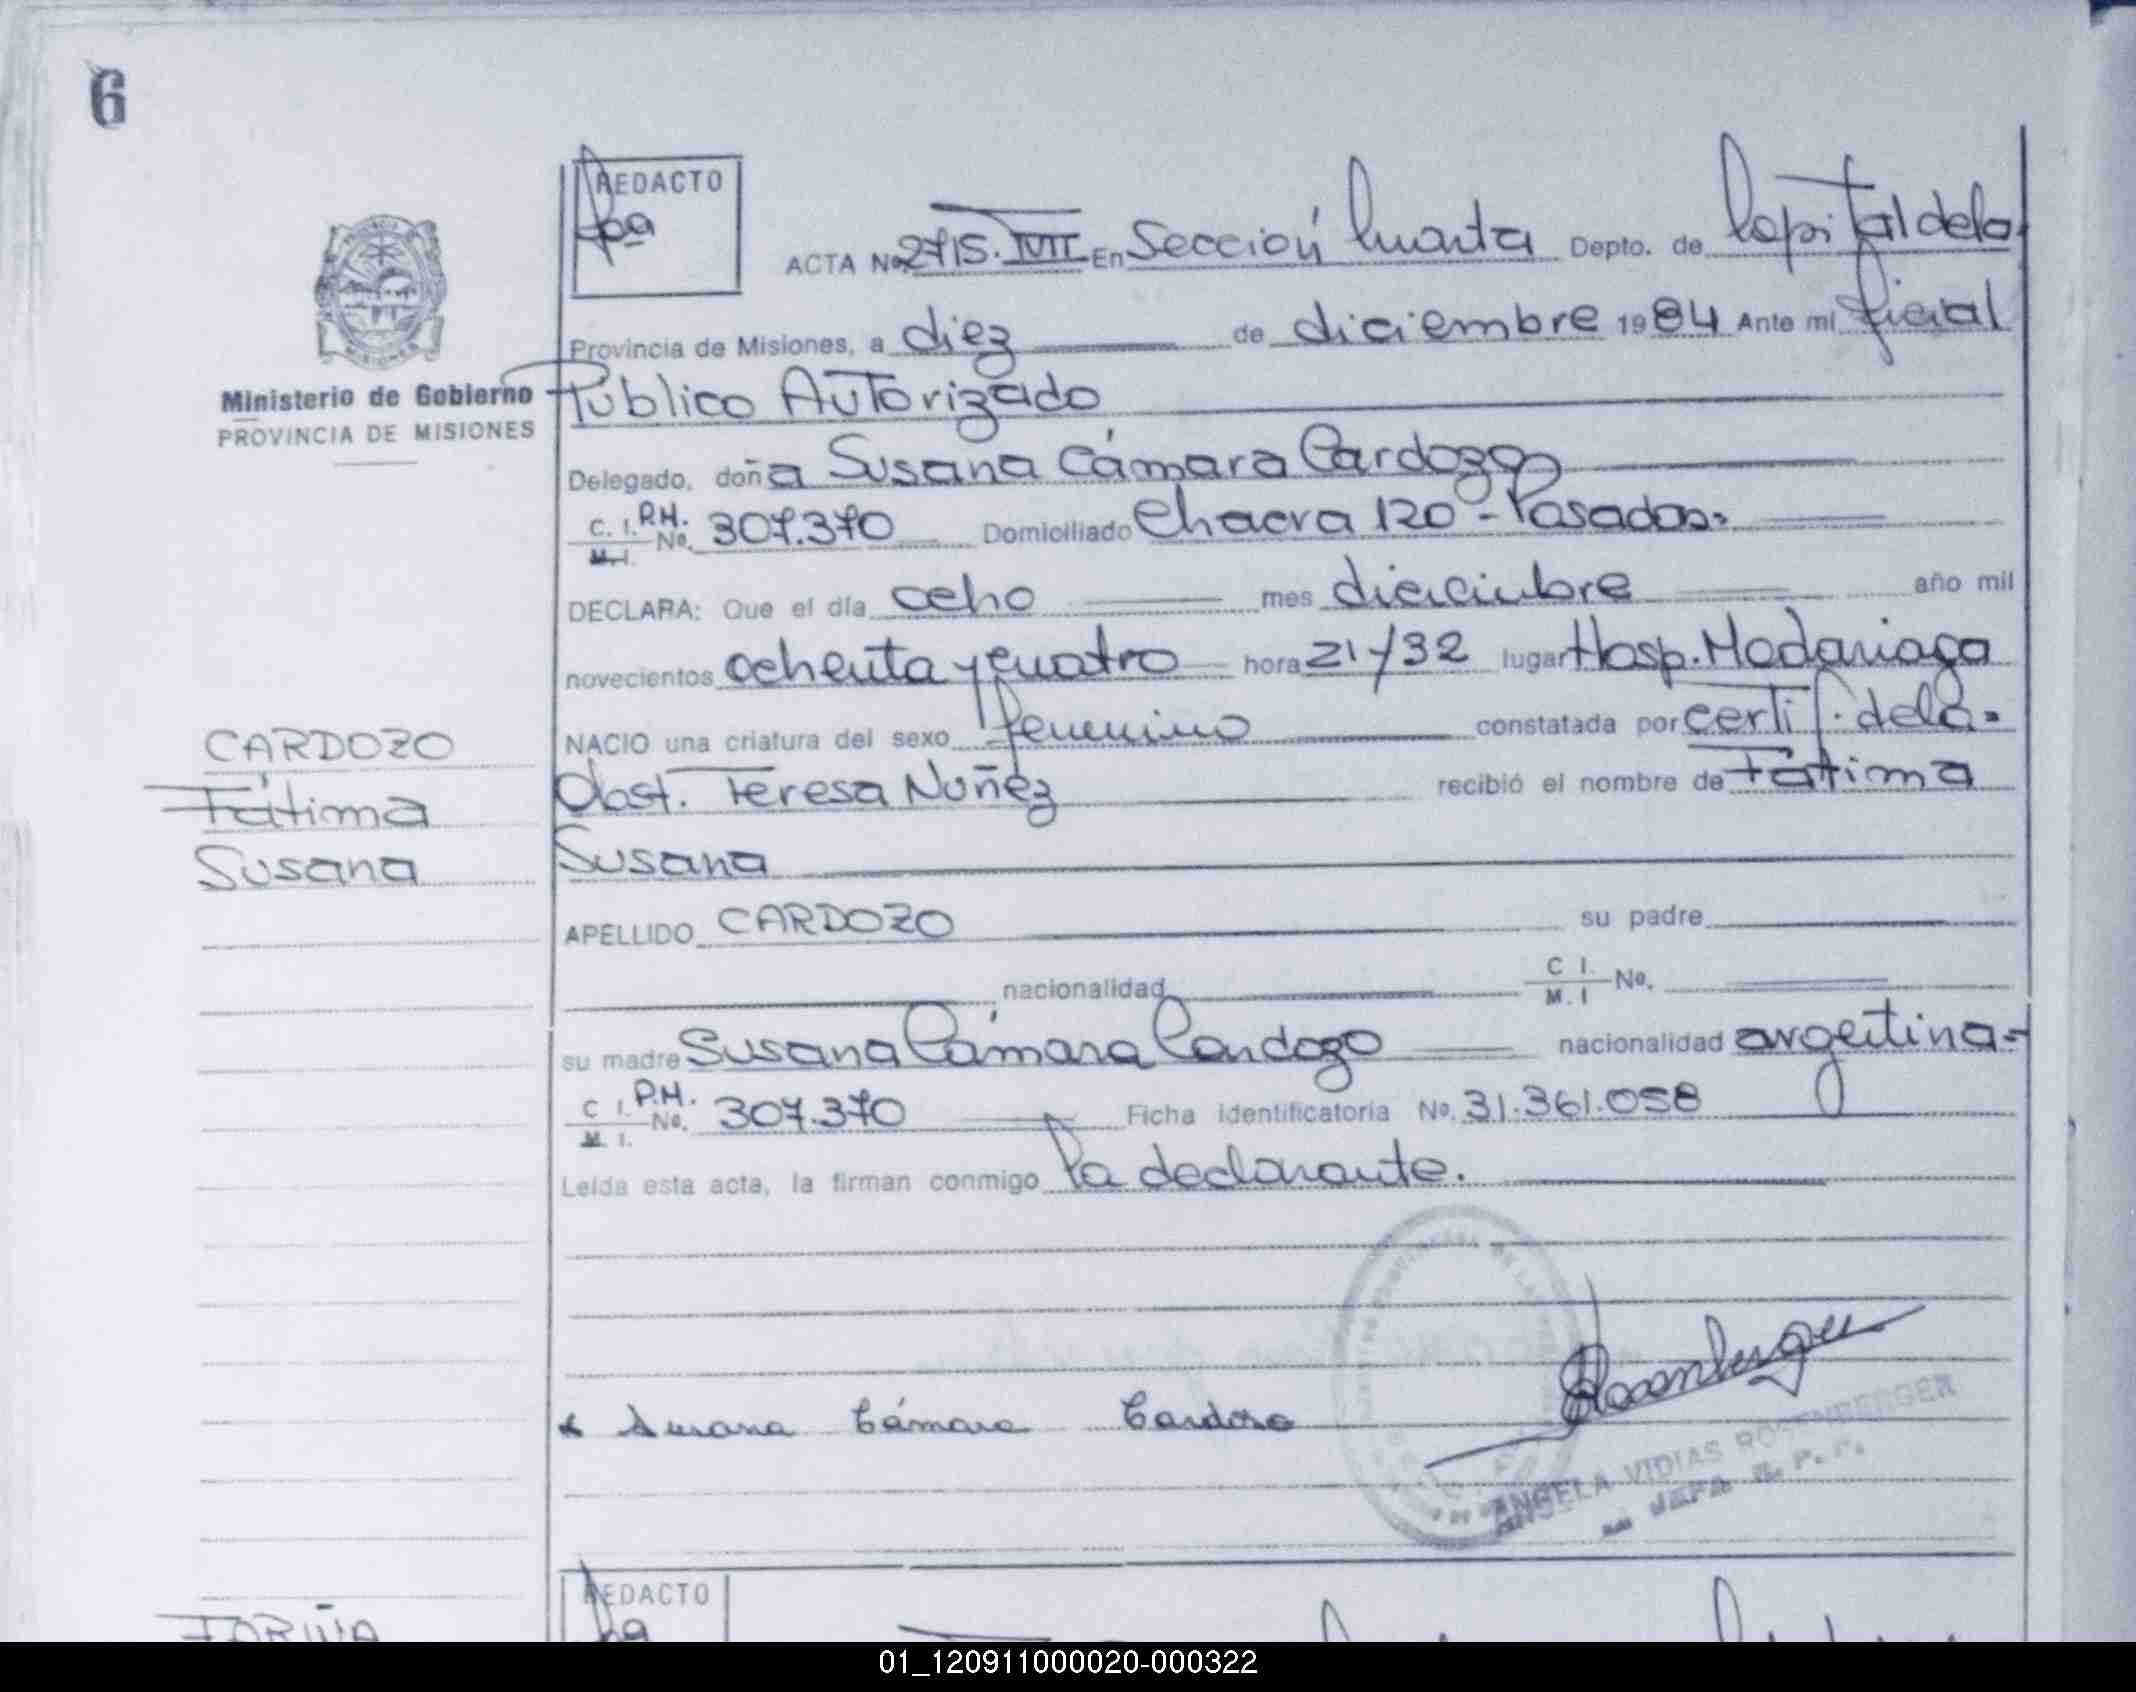 6
REDACTO
ACTA No 2715. TVII En Sección Cuarta Depto. de Capital de la
Provincia de Misiones, a diez de diciembre 1984 Ante mi Oficial
Ministerio de Gobierno
PROVINCIA DE MISIONES
Público Autorizado
Delegado, doña Susana Cámara Cardozo
C. I. P.H. No. 307.370 Domiciliado Chacra 120 - Posadas-
M.I.
DECLARA: Que el día ocho mes diciembre año mil
novecientos ochenta y cuatro hora 21/32 lugar Hosp. Madariaga
NACIO una criatura del sexo femenino constatada por certif. de la-
Obst. Teresa Nuñez recibió el nombre de Fátima
Susana
CARDOZO
Fátima
Susana
APELLIDO CARDOZO su padre
nacionalidad C I. No.
M. I
su madre Susana Cámara Cardozo nacionalidad argentina-
C I. P.H. No. 307.370 Ficha identificatoria No. 31.361.058
M. I.
Leída esta acta, la firman conmigo la declarante.
Susana Cámara Cardozo
Rosenberger
ANGELA VIDIAS ROSENBERGER
JEFA R. P. P.
REDACTO
FARIÑA
01_120911000020-000322